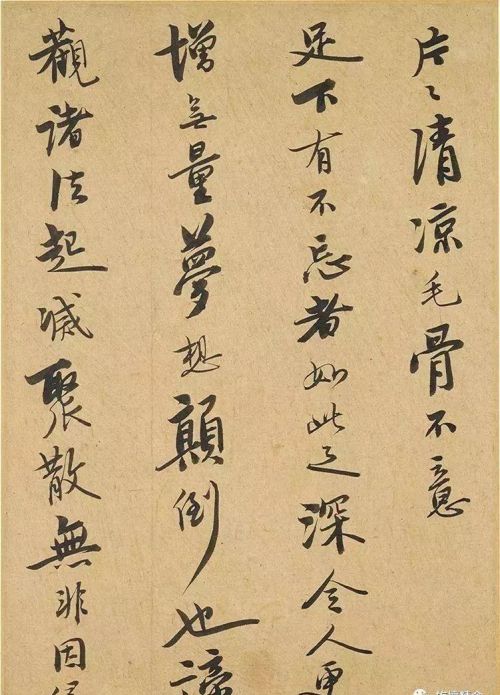 片々清凉毛骨不意
足下有不忘者如此之深令人更
增无量夢想顛倒也諦
觀諸法起滅聚散無非因缘